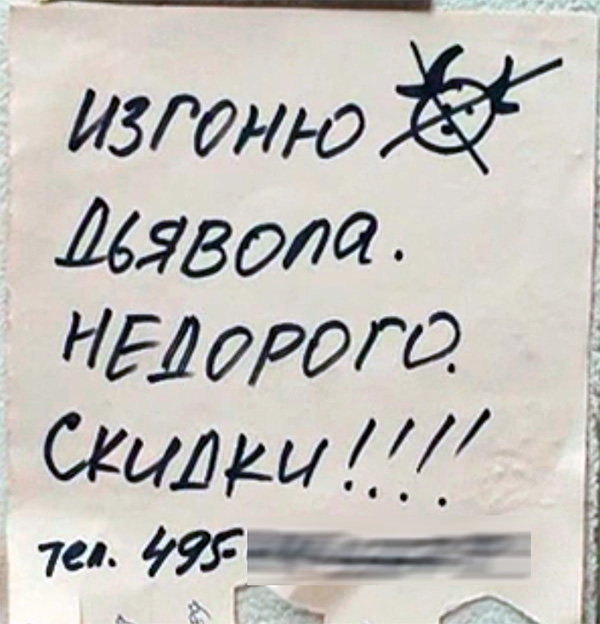 ИЗГОНЮ
ДЬЯВОЛА.
НЕДОРОГО.
СКИДКИ!!!!
тел. 495-